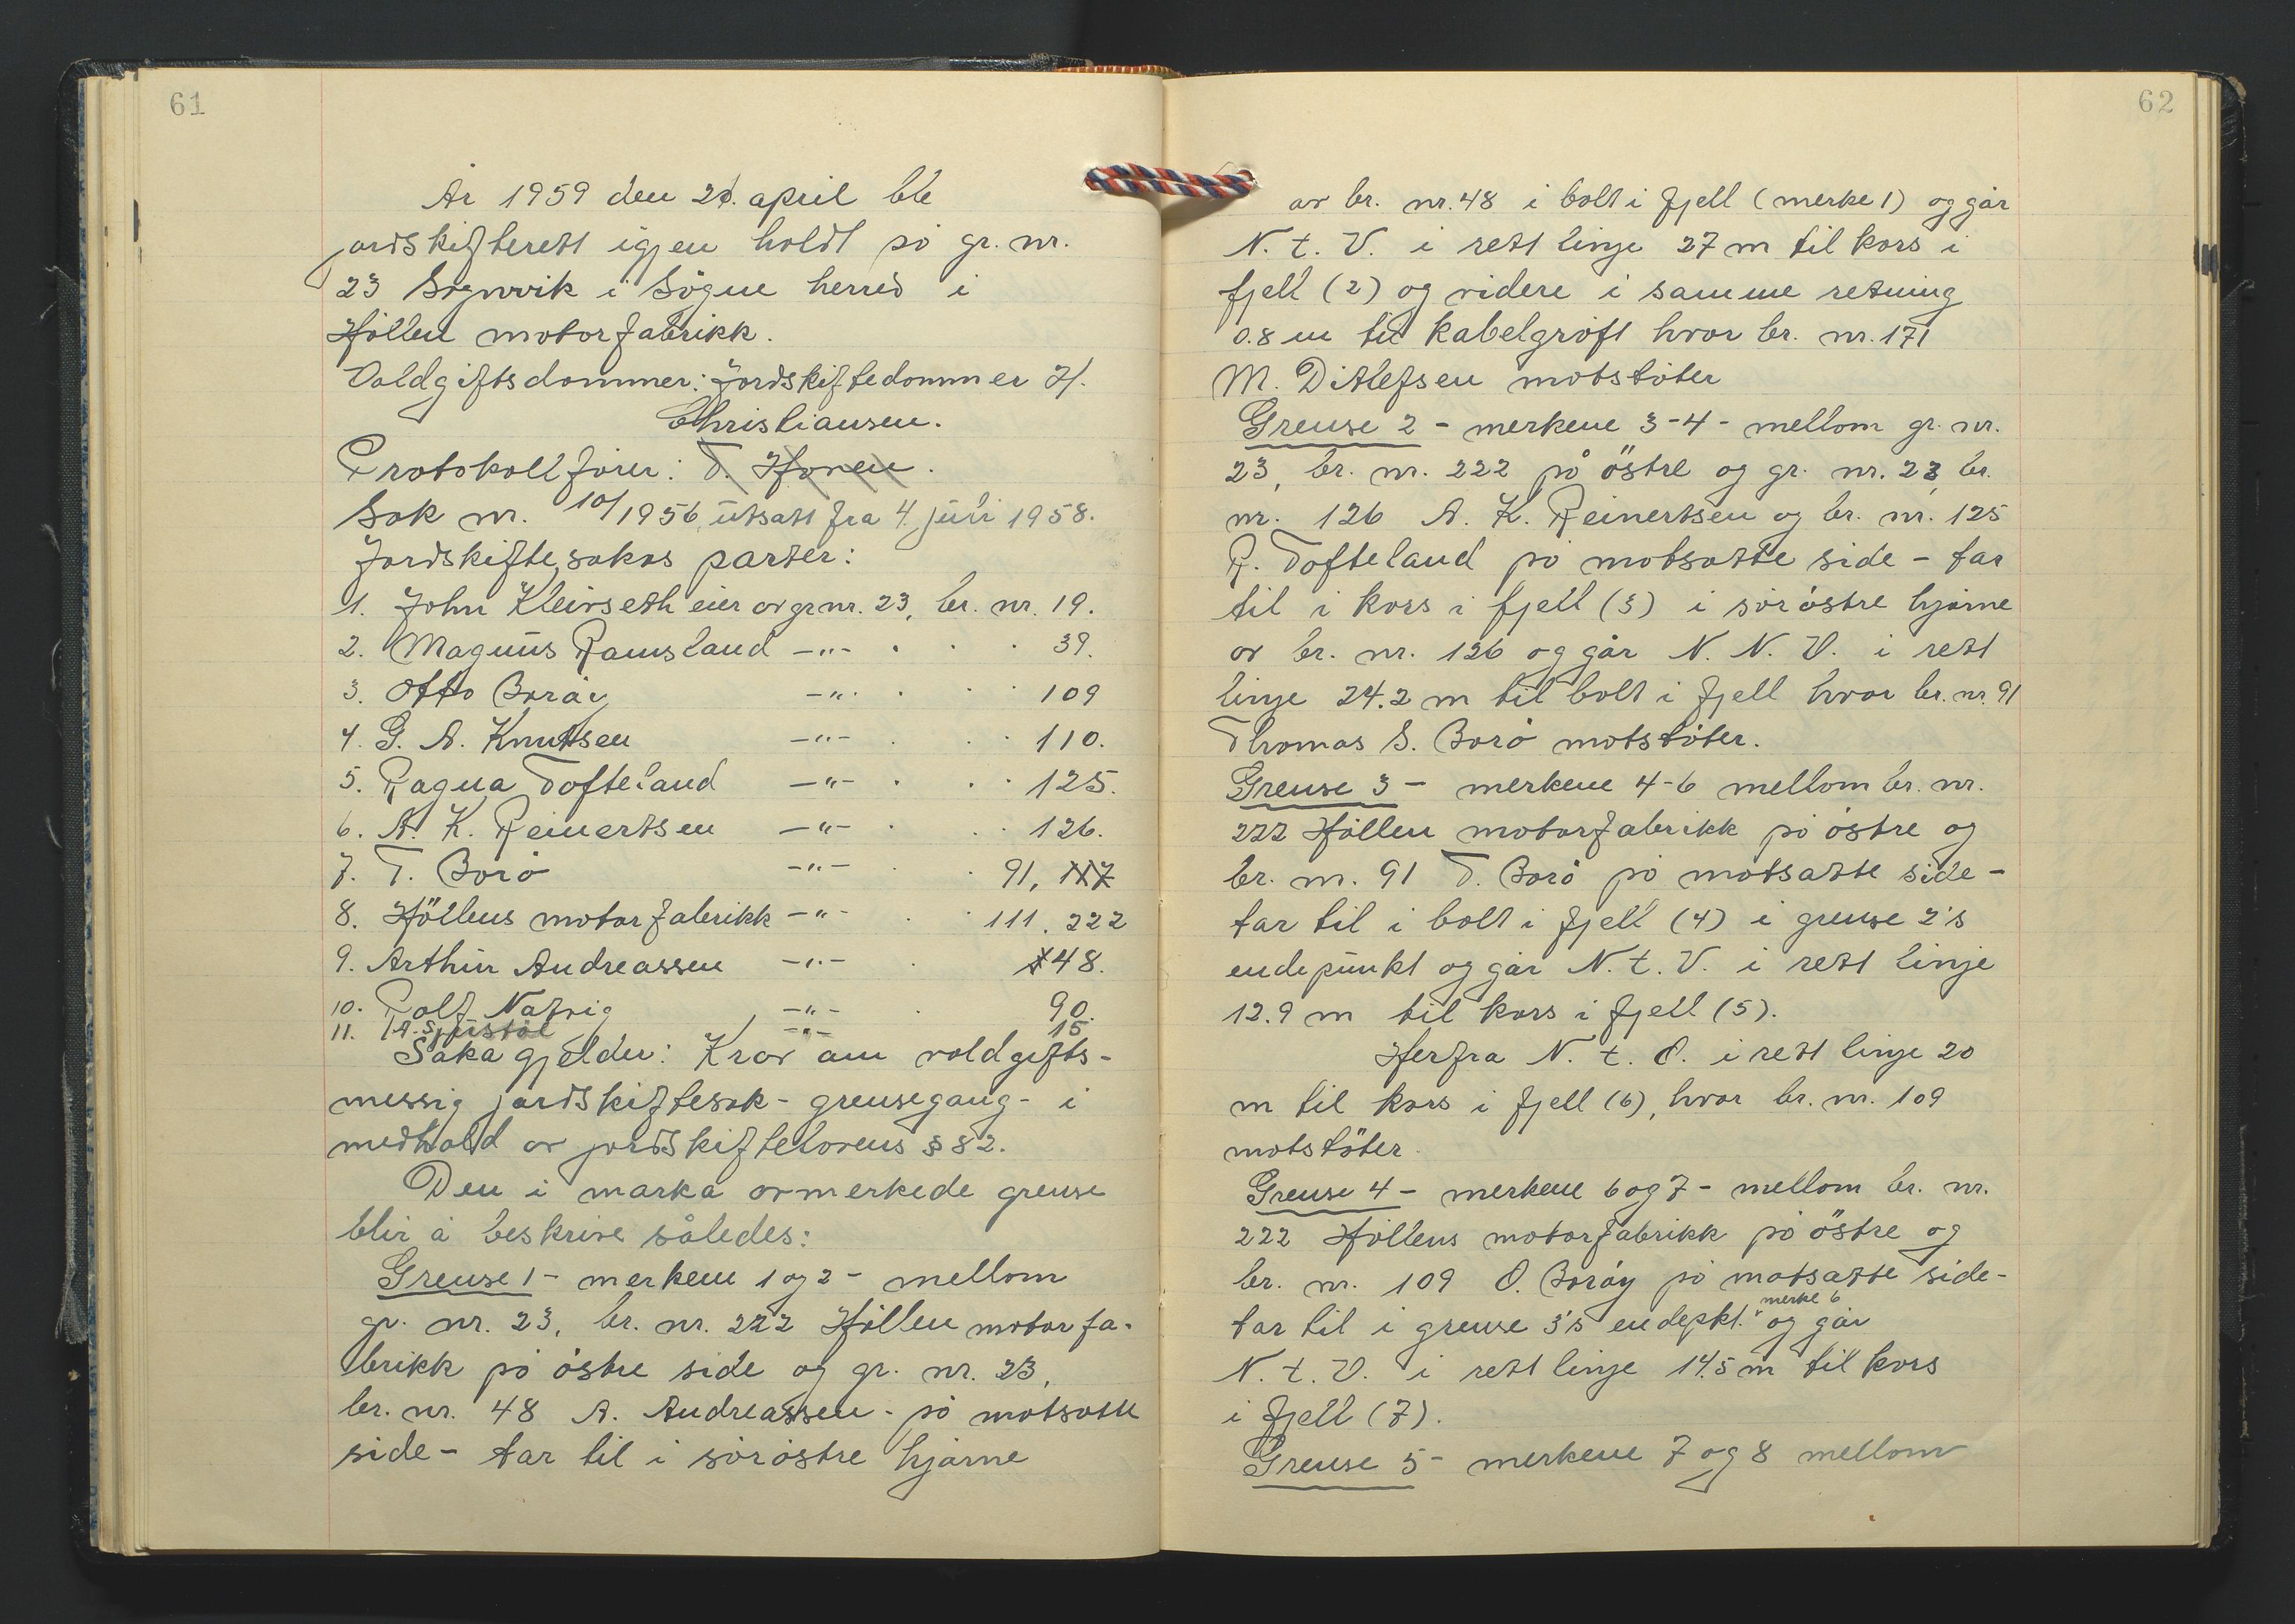 61
År 1959 den 21. april ble
jordskifterett igjen holdt på gr. nr.
23 Søgnvik i Søgne herred i
Höllen motorfabrikk.
Voldgiftsdommer: Jordskiftedommer H.
Christiansen.
Protokollfører: T. Hoven.
Sak nr. 10/1956, utsatt fra 4. juli 1958.
Jordskiftesakas parter:
1. John Kleivseth eier av gr nr. 23, br. nr. 19.
2. Magnus Ramsland -"- . . . 39.
3. Otto Borøy -"- . . . 109
4. G. A. Knutsen -"- . . . 110.
5. Ragna Tofteland -"- . . . 125.
6. A. K. Reinertsen -"- . . . 126.
7. T. Borø -"- . . 91, 117
8. Höllens motorfabrikk -"- . . 111. 222
9. Arthur Andreassen -"- . 48.
10. Rolf Natvig -"- . 90.
11. A. Sjustøl -"- 15
Saka gjelder: Krav om voldgifts-
messig jordskiftesak - grensegang - i
medhold av jordskiftelovens § 82.
Den i marka avmerkede grense
blir å beskrive således:
Grense 1 - merkene 1 og 2 - mellom
gr. nr. 23, br. nr. 222 Höllen motorfa-
brikk på østre side og gr. nr. 23,
br. nr. 48 A. Andreassen - på motsatte
side - tar til i sørøstre hjørne
62
av br. nr. 48 i bolt i fjell (merke 1) og går
N. t. V. i rett linje 27 m til kors i
fjell (2) og videre i samme retning
0.8 m til kabelgrøft hvor br. nr. 171
M. Ditlefsen motstøter
Grense 2 - merkene 3-4 - mellom gr. nr.
23, br. nr. 222 på östre og gr. nr. 23, br.
nr. 126 A. K. Reinertsen og br. nr. 125
R. Tofteland på motsatte side - tar
til i kors i fjell (3) i sørøstre hjørne
av br. nr. 126 og går N. N. V. i rett
linje 24.2 m til bolt i fjell hvor br. nr. 91
Thomas S. Borø motstøter.
Grense 3 - merkene 4-6 mellom br. nr.
222 Höllen motorfabrikk på østre og
br. nr. 91 T. Borø på motsatte side -
tar til i bolt i fjell (4) i grense 2's
endepunkt og går N. t. V. i rett linje
12.9 m til kors i fjell (5).
Herfra N. t. O. i rett linje 20
m til kors i fjell (6), hvor br. nr. 109
motstöter.
Grense 4 - merkene 6 og 7 - mellom br. nr.
222 Höllens motorfabrikk på östre og
br. nr. 109 O. Borøy på motsatte side -
tar til i grense 3's endepkt. merke 6 og går
N. t. V. i rett linje 14.5 m til kors
i fjell (7).
Grense 5 - merkene 7 og 8 mellom